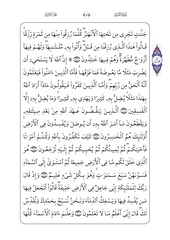 جَنَّٰتٍ تَجْرِي مِن تَحْتِهَا ٱلْأَنْهَٰرُ كُلَّمَا رُزِقُوا۟ مِنْهَا مِن ثَمَرَةٍ رِّزْقًا
قَالُوا۟ هَٰذَا ٱلَّذِي رُزِقْنَا مِن قَبْلُ وَأُتُوا۟ بِهِۦ مُتَشَٰبِهًا وَلَهُمْ فِيهَآ
أَزْوَٰجٌ مُّطَهَّرَةٌ وَهُمْ فِيهَا خَٰلِدُونَ إِنَّ ٱللَّهَ لَا يَسْتَحْيِۦٓ أَن
يَضْرِبَ مَثَلًا مَّا بَعُوضَةً فَمَا فَوْقَهَا فَأَمَّا ٱلَّذِينَ ءَامَنُوا۟ فَيَعْلَمُونَ
أَنَّهُ ٱلْحَقُّ مِن رَّبِّهِمْ وَأَمَّا ٱلَّذِينَ كَفَرُوا۟ فَيَقُولُونَ مَاذَآ أَرَادَ ٱللَّهُ
بِهَٰذَا مَثَلًا يُضِلُّ بِهِۦ كَثِيرًا وَيَهْدِي بِهِۦ كَثِيرًا وَمَا يُضِلُّ بِهِۦٓ إِلَّا
ٱلْفَٰسِقِينَ ٱلَّذِينَ يَنقُضُونَ عَهْدَ ٱللَّهِ مِنۢ بَعْدِ مِيثَٰقِهِۦ
وَيَقْطَعُونَ مَآ أَمَرَ ٱللَّهُ بِهِۦٓ أَن يُوصَلَ وَيُفْسِدُونَ فِي ٱلْأَرْضِ
أُو۟لَٰٓئِكَ هُمُ ٱلْخَٰسِرُونَ كَيْفَ تَكْفُرُونَ بِٱللَّهِ وَكُنتُمْ أَمْوَٰتًا
فَأَحْيَٰكُمْ ثُمَّ يُمِيتُكُمْ ثُمَّ يُحْيِيكُمْ ثُمَّ إِلَيْهِ تُرْجَعُونَ هُوَ
ٱلَّذِي خَلَقَ لَكُم مَّا فِي ٱلْأَرْضِ جَمِيعًا ثُمَّ ٱسْتَوَىٰٓ إِلَى ٱلسَّمَآءِ
فَسَوَّىٰهُنَّ سَبْعَ سَمَٰوَٰتٍ وَهُوَ بِكُلِّ شَيْءٍ عَلِيمٌ وَإِذْ قَالَ
رَبُّكَ لِلْمَلَٰٓئِكَةِ إِنِّي جَاعِلٌ فِي ٱلْأَرْضِ خَلِيفَةً قَالُوٓا۟ أَتَجْعَلُ فِيهَا
مَن يُفْسِدُ فِيهَا وَيَسْفِكُ ٱلدِّمَآءَ وَنَحْنُ نُسَبِّحُ بِحَمْدِكَ وَنُقَدِّسُ
لَكَ قَالَ إِنِّيٓ أَعْلَمُ مَا لَا تَعْلَمُونَ وَعَلَّمَ ءَادَمَ ٱلْأَسْمَآءَ كُلَّهَا